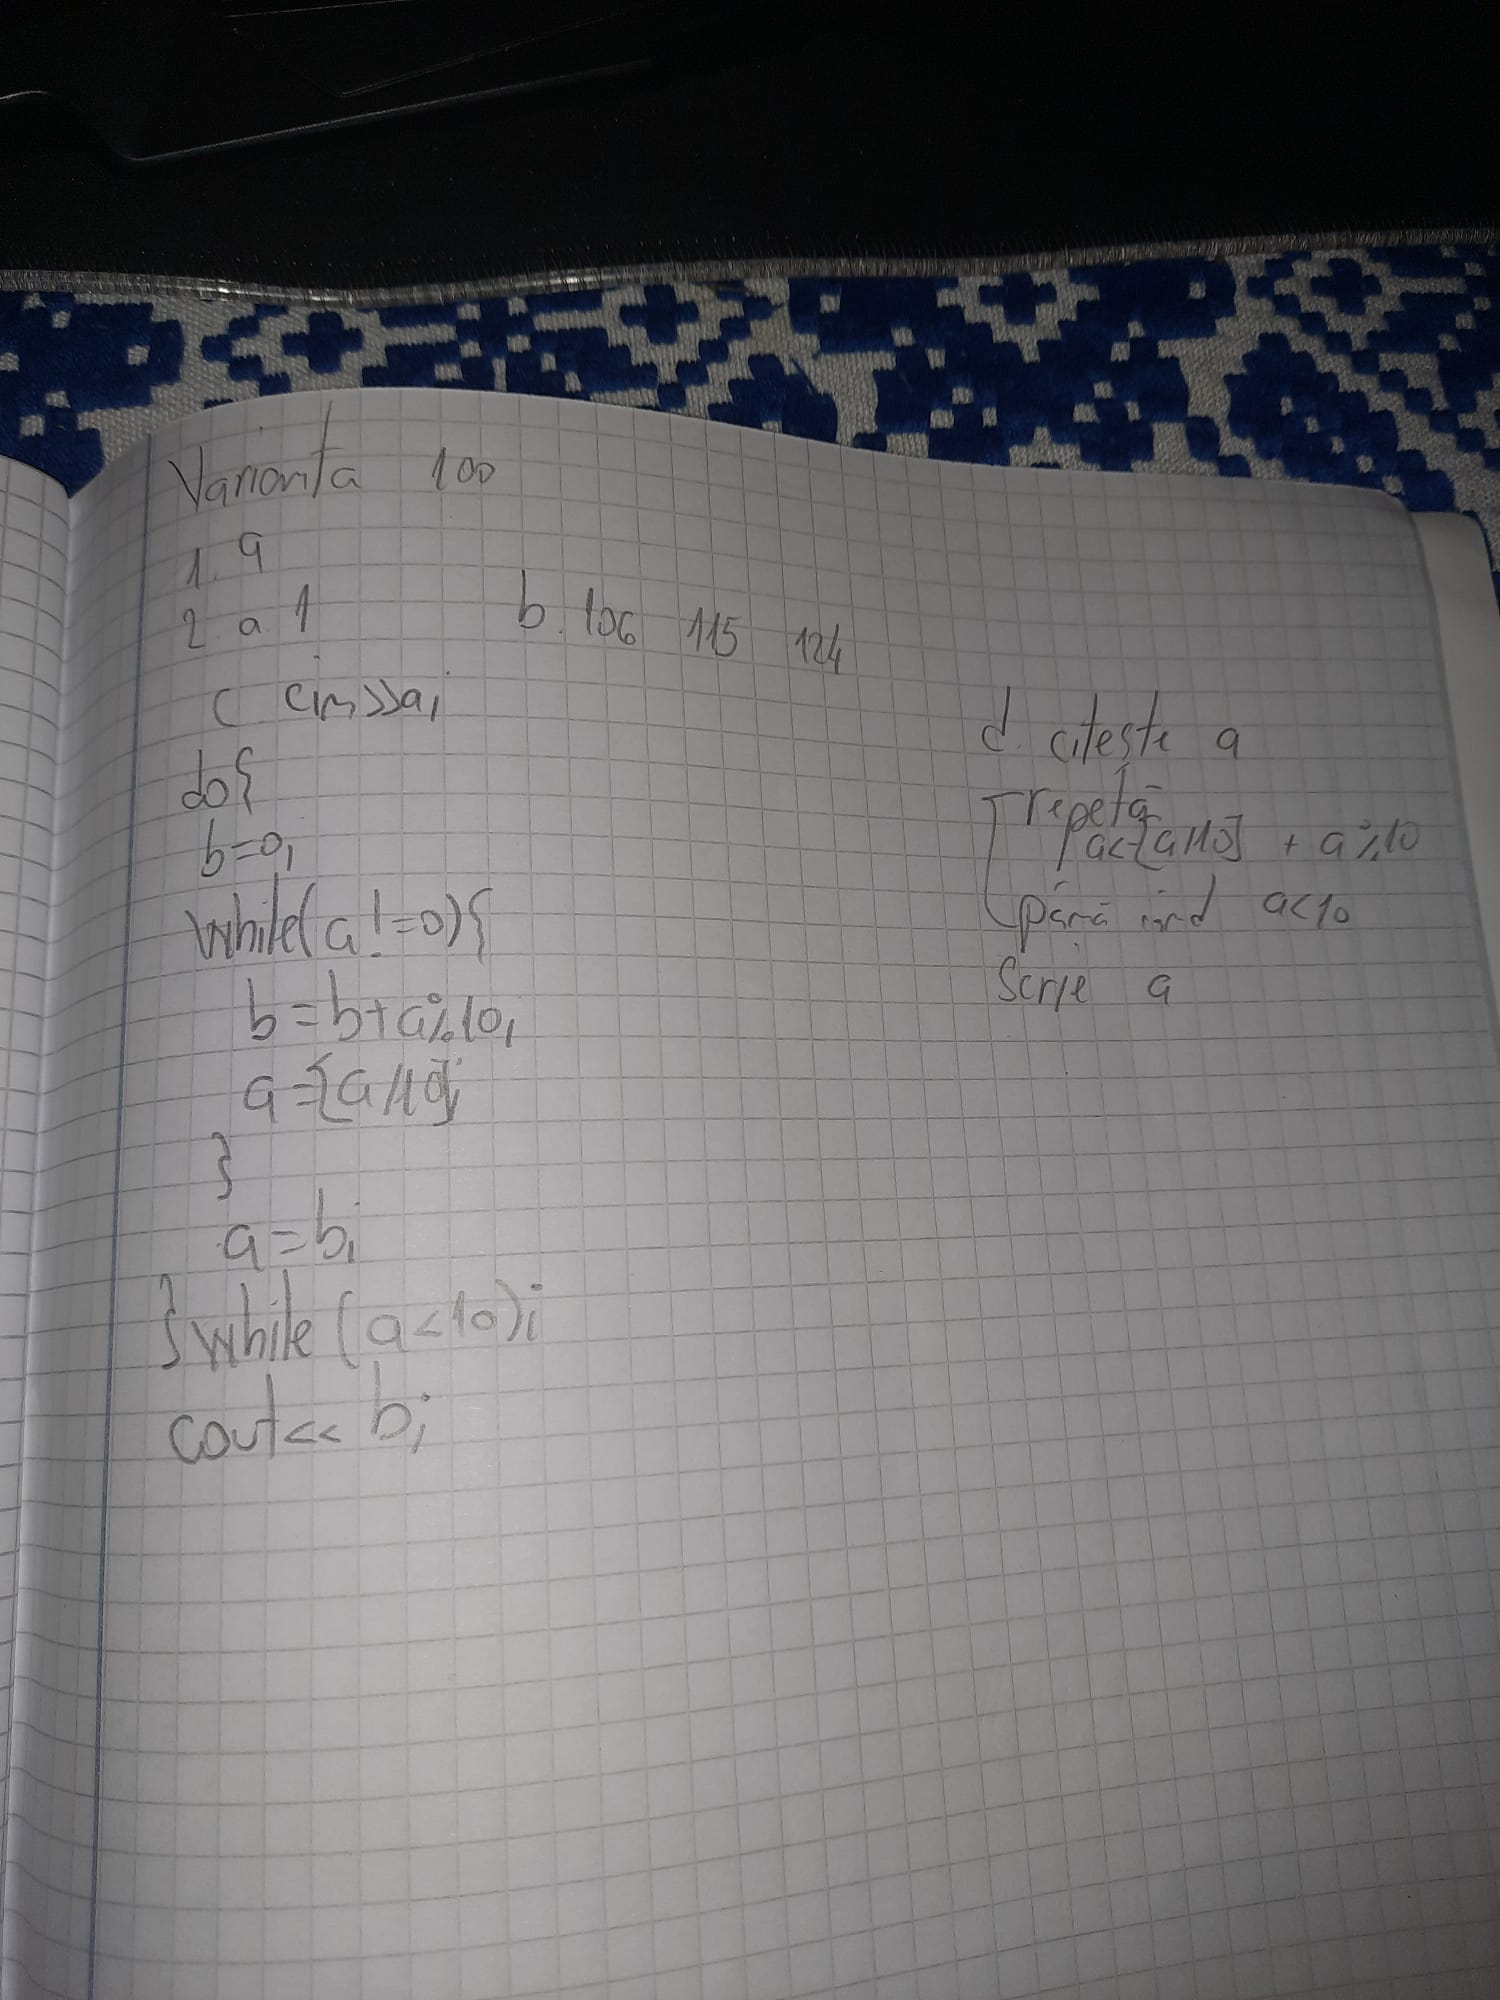 Varianta 100
1. a
2. a. 1 b. 106 115 124
c cin>>a;
do{
b=0;
while(a!=0){
b=b+a%10;
a=[a/10];
}
a=b;
}while(a<10);
cout<< b;
d. citește a
repetă
a<-[a/10] + a%10
până când a<10
Scrie a